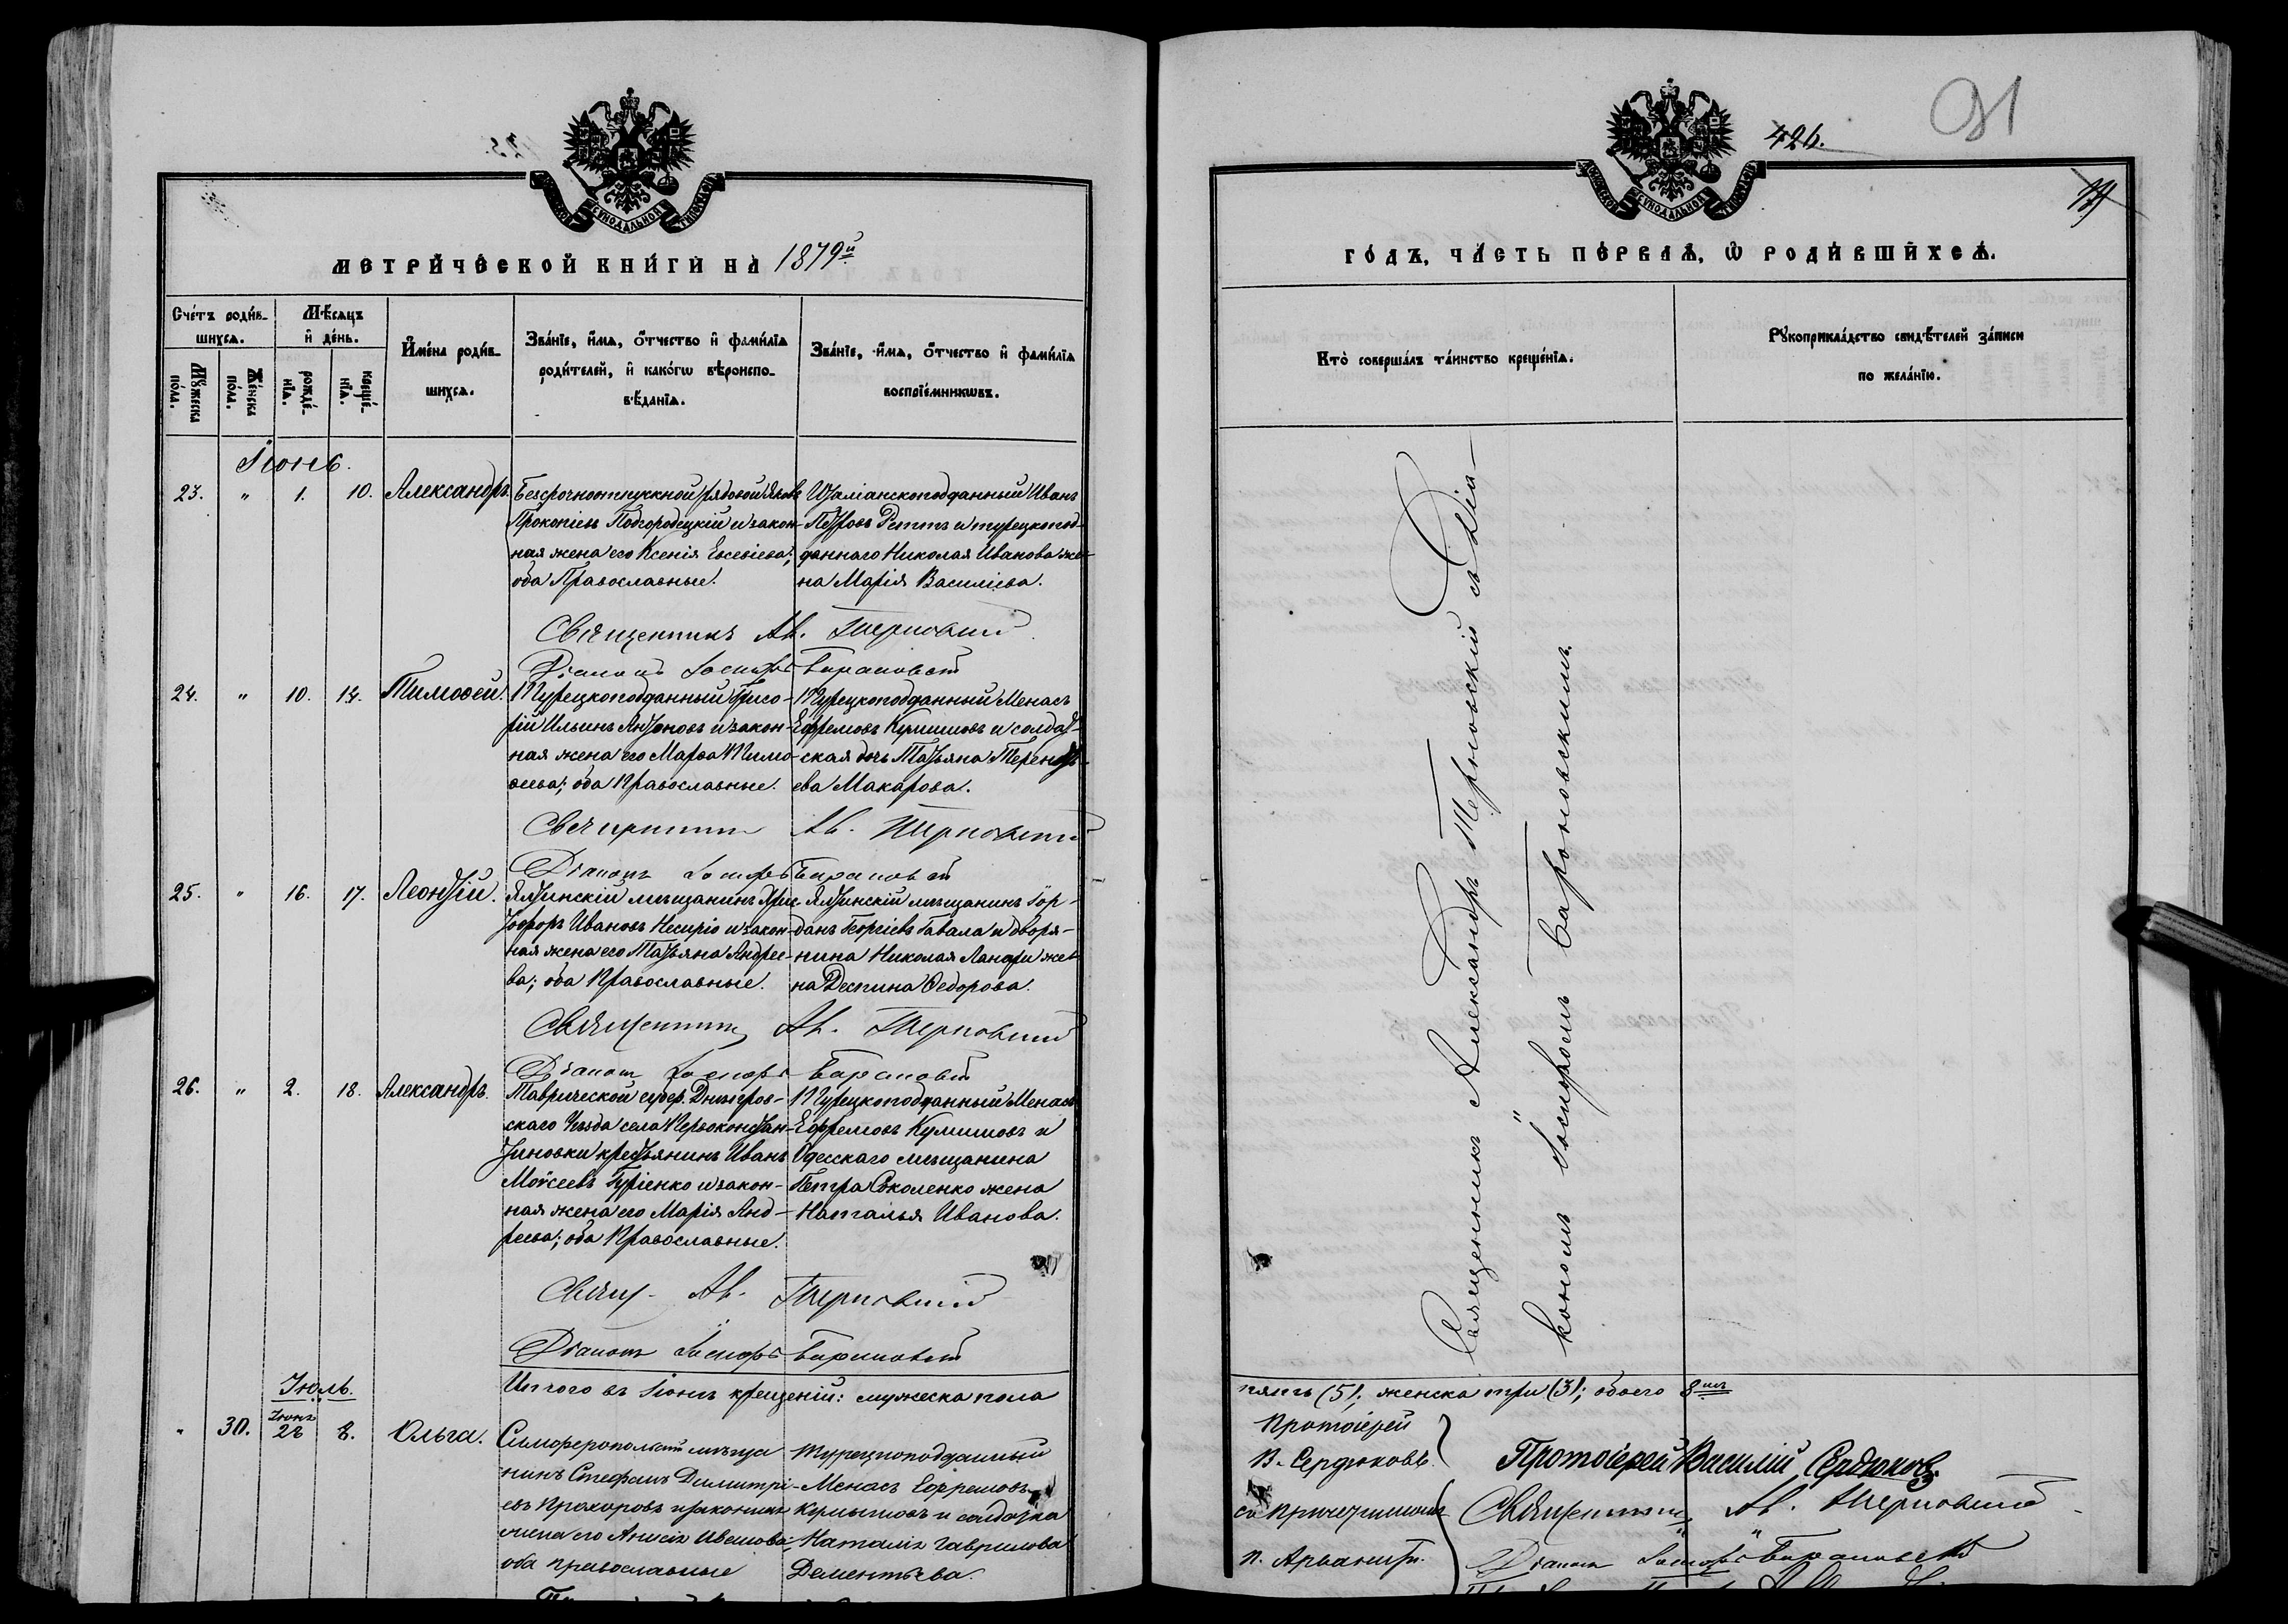 МОСКОВСКОЙ СѴНОДАЛЬНОЙ ТИПОГРАФІИ
МЕТРИ́ЧЕСКОЙ КНИ́ГИ НА 1879й
Сче́тъ роди́в-
шихся.
Мѣ́сяцъ
и де́нь.
Му́жеска по́ла.
Же́нска по́ла.
рожде́-
нїя.
креще́-
нїя.
Имена̀ роди́в-
шихся.
Зва́нїе, и́мя, о́тчество и фами́лїя
роди́телей, и како́гѡ вѣроиспо-
вѣ́данїя.
Зва́нїе, и́мя, о́тчество и фами́лїя
воспрїе́мникѡвъ.
Іюнь.
23. " 1. 10. Александръ.
Безсрочноотпускной рядовой Яковъ
Прокопіевъ Подгородецкій и закон-
ная жена его Ксенія Евсевіева;
оба Православные.
Италіанскоподданный Иванъ
Петровъ Реттъ и турецкопод-
даннаго Николая Иванова же-
на Марія Василіева.
Священникъ Ал. Терновскій
Діаконъ Іосифъ Барановскій
24. " 10. 14. Тимоѳей.
Турецкоподданный Григо-
рій Ильинъ Антоновъ и закон-
ная жена его Марѳа Тимо-
ѳеева; оба Православные.
Турецкоподданный Менасъ
Ефремовъ Кумишовъ и солдат-
ская дочь Татьяна Теренті-
ева Макарова.
Священникъ Ал. Терновскій
Діаконъ Іосифъ Барановскій
25. " 16. 17. Леонтій.
Ялтинскій мѣщанинъ Хрис-
тофоръ Ивановъ Несиріо и закон-
ная жена его Татьяна Андрее-
ва; оба Православные.
Ялтинскій мѣщанинъ Іор-
данъ Георгіевъ Гавала и дворя-
нина Николая Ландри же-
на Деспина Ѳедорова.
Священникъ Ал. Терновскій
Діаконъ Іосифъ Барановскій
26. " 2. 18. Александръ.
Таврической губер. Днѣпров-
скаго Уѣзда села Первоконстан-
тиновки крестьянинъ Иванъ
Моѵсеевъ Гуріенко и закон-
ная жена его Марія Анд-
реева; оба Православные.
Турецкоподданный Менасъ
Ефремовъ Кумишовъ и
Одесскаго мѣщанина
Петра Соколенко жена
Наталья Иванова.
Свящ. Ал. Терновскій
Діаконъ Іосифъ Барановскій
Итого въ Іюнѣ крещеній: мужеска пола
Іюль.
" 30. Іюня 28 8. Ольга.
Симферопольскій мѣща
нинъ Стефанъ Димитрі-
евъ Прохоровъ и законная
жена его Анисія Ивановна
оба православные
Турецкоподданный
Менасъ Ефремовъ
Кумышовъ и солдатка
Наталія Гаврилова
Дементьева.
426.
91
МОСКОВСКОЙ СѴНОДАЛЬНОЙ ТИПОГРАФІИ
ГО́ДЪ, ЧА́СТЬ ПЕ́РВАЯ, Ѡ РОДИ́ВШИХСЯ.
Кто̀ соверша́лъ та́инство креще́нїя.
Рꙋкоприкла́дство свидѣ́телей за́писи
по жела́нїю.
Священникъ Александръ Терновскій съ Діа-
кономъ Іосифомъ Барановскимъ.
пять (5); женска три (3); обоего 8мь
Протоіерей
В. Сердюковъ
съ причетникомъ
п. Арванити.
Протоіерей Василій Сердюковъ.
Священникъ Ал. Терновскій
Діаконъ Іосифъ Барановскій